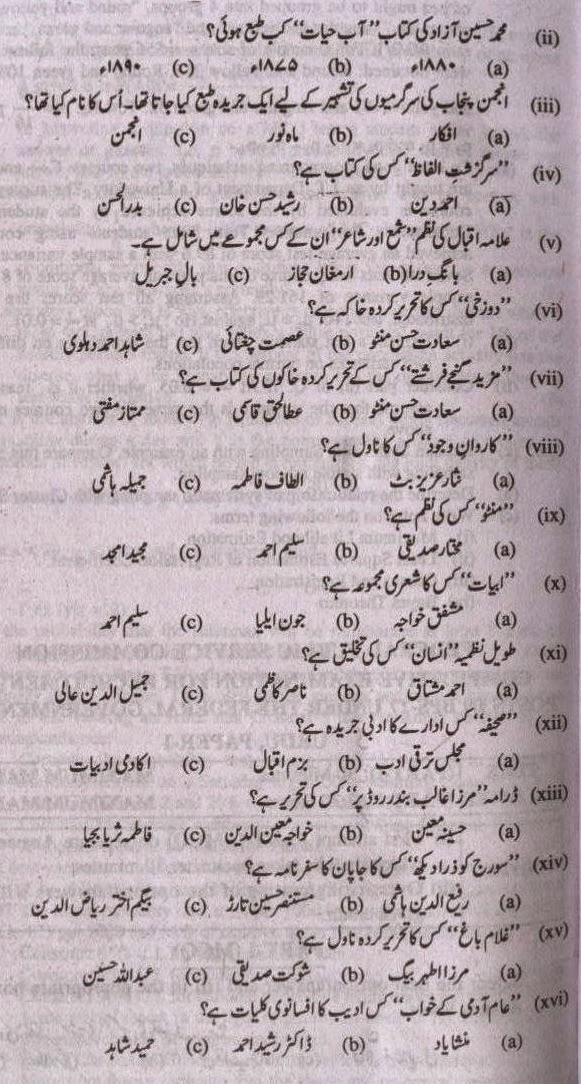 (ii) محمد حسین آزاد کی کتاب ”آب حیات“ کب طبع ہوئی؟
(a) ۱۸۸۰ء (b) ۱۸۷۵ء (c) ۱۸۹۰ء
(iii) انجمن پنجاب کی سرگرمیوں کی تشہیر کے لیے ایک جریدہ طبع کیا جاتا تھا۔ اُس کا نام کیا تھا؟
(a) افکار (b) ماہ نور (c) انجمن
(iv) ”سرگزشتِ الفاظ“ کس کی کتاب ہے؟
(a) احمد دین (b) رشید حسن خان (c) بدر الحسن
(v) علامہ اقبال کی نظم ”شمع اور شاعر“ ان کے کس مجموعے میں شامل ہے۔
(a) بانگ درا (b) ارمغان حجاز (c) بال جبریل
(vi) ”دوزخی“ کس کا تحریر کردہ خاکہ ہے؟
(a) سعادت حسن منٹو (b) عصمت چغتائی (c) شاہد احمد دہلوی
(vii) ”مزید گنجے فرشتے“ کس کے تحریر کردہ خاکوں کی کتاب ہے؟
(a) سعادت حسن منٹو (b) عطا الحق قاسمی (c) ممتاز مفتی
(viii) ”کاروانِ وجود“ کس کا ناول ہے؟
(a) نثار عزیز بٹ (b) الطاف فاطمہ (c) جمیلہ ہاشمی
(ix) ”منٹو“ کس کی نظم ہے؟
(a) مختار صدیقی (b) سلیم احمد (c) مجید امجد
(x) ”ابیات“ کس کا شعری مجموعہ ہے؟
(a) مشفق خواجہ (b) جون ایلیا (c) سلیم احمد
(xi) طویل نظمیہ ”انسان“ کس کی تخلیق ہے؟
(a) احمد مشتاق (b) ناصر کاظمی (c) جمیل الدین عالی
(xii) ”صحیفہ“ کس ادارے کا ادبی جریدہ ہے؟
(a) مجلس ترقی ادب (b) بزم اقبال (c) اکادمی ادبیات
(xiii) ڈرامہ ”مرزا غالب بندر روڈ پر“ کس کی تحریر ہے؟
(a) حسینہ معین (b) خواجہ معین الدین (c) فاطمہ ثریا بجیا
(xiv) ”سورج کو ذرا دیکھ“ کس کا جاپان کا سفر نامہ ہے؟
(a) رفیع الدین ہاشمی (b) مستنصر حسین تارڑ (c) بیگم اختر ریاض الدین
(xv) ”غلام باغ“ کس کا تحریر کردہ ناول ہے؟
(a) مرزا اطہر بیگ (b) شوکت صدیقی (c) عبداللہ حسین
(xvi) ”عام آدمی کے خواب“ کس ادیب کا افسانوی کلیات ہے؟
(a) منشا یاد (b) ڈاکٹر رشید احمد (c) حمید شاہد